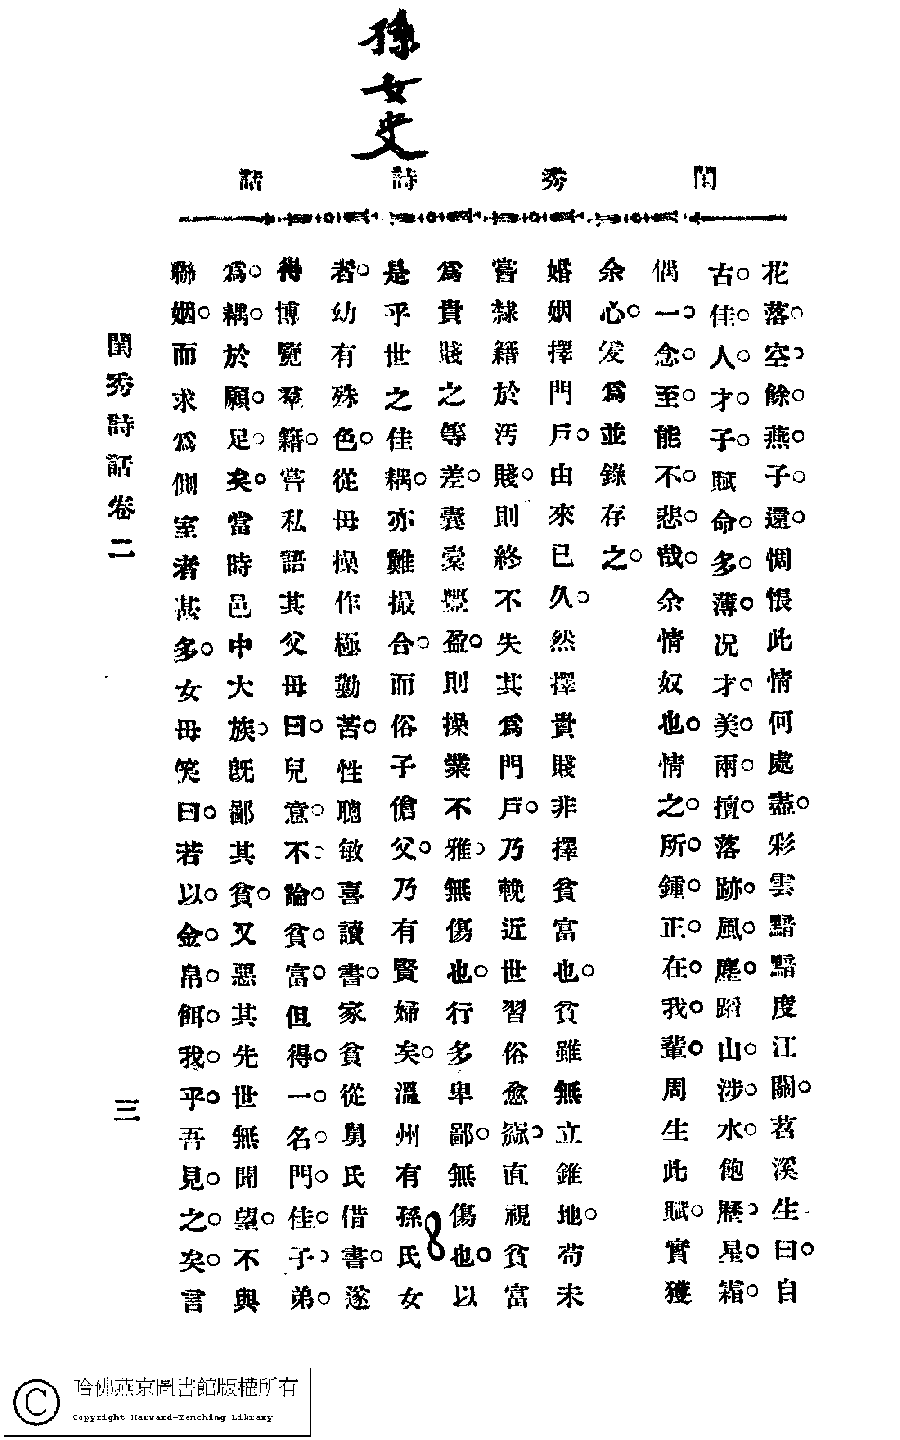 孫女史
閨秀詩話
花落空餘燕子還惆悵此情何處盡彩雲黯黯度江關苕溪生曰自
古佳人才子賦命多薄況才美兩擅落跡風塵蹋山涉水飽歷星霜
偶一念至能不悲哉余情奴也情之所鍾正在我輩周生此賦實獲
余心爰為並錄存之
婚姻擇門戶由來已久然擇貴賤非擇貧富也貧雖無立錐地苟未
嘗隸籍於污賤則終不失其為門戶乃輓近世習俗愈漓直視貧富
為貴賤之等差囊橐豐盈則操業不雅無傷也行多卑鄙無傷也以
是乎世之佳耦亦難撮合而俗子傖父乃有賢婦矣溫州有孫氏女
8
者幼有殊色從母操作極勤苦性聰敏喜讀書家貧從舅氏借書遂
得博覽羣籍嘗私語其父母曰兒意不論貧富但得一名門佳子弟
為耦於願足矣當時邑中大族既鄙其貧又惡其先世無聞望不與
聯姻而求為側室者甚多女母笑曰若以金帛餌我乎吾見之矣言
閨秀詩話卷二
三
哈佛燕京圖書館版權所有
Copyright Harvard-Yenching Library